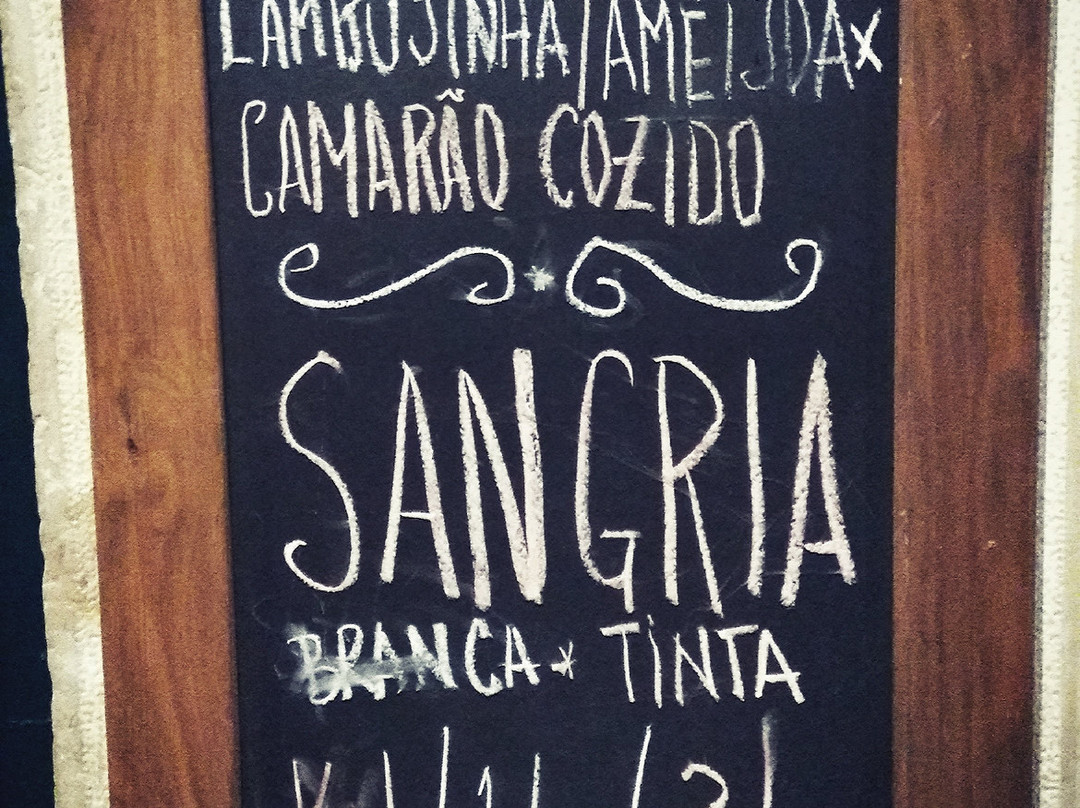 LAMBUJINHA/AMEIJOA x
CAMARÃO COZIDO
SANGRIA
BRANCA * TINTA